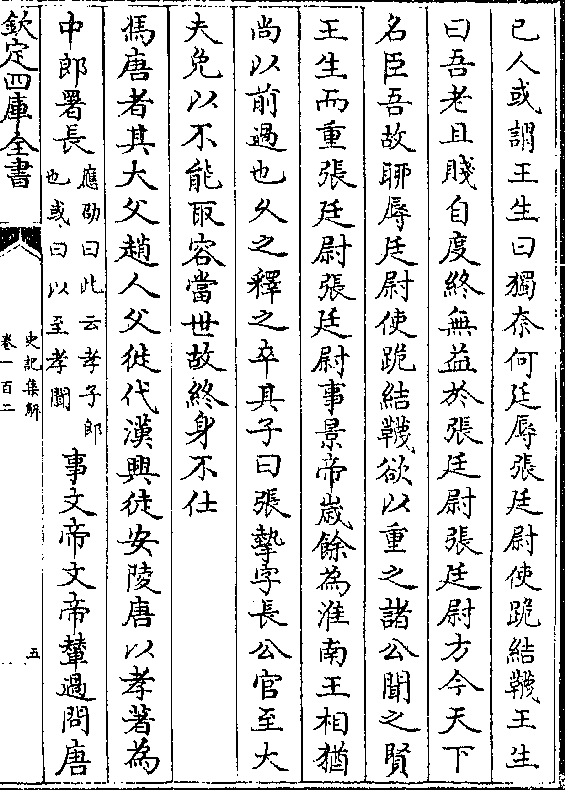 已人或謂王生曰獨奈何廷辱張廷尉使跪結韈王生
曰吾老且賤自度終無益於張廷尉張廷尉方今天下
名臣吾故聊辱廷尉使跪結韈欲以重之諸公聞之賢
王生而重張廷尉張廷尉事景帝歲餘為淮南王相猶
尚以前過也乆之釋之卒其子曰張摯字長公官至大
夫免以不能取容當世故終身不仕
馮唐者其大父趙人父徙代漢興徙安陵唐以孝著為
中郎署長
應劭曰此云孝子郎
也或曰以至孝聞
事文帝文帝輦過問唐
欽定四庫全書
史記集解
卷一百二
五